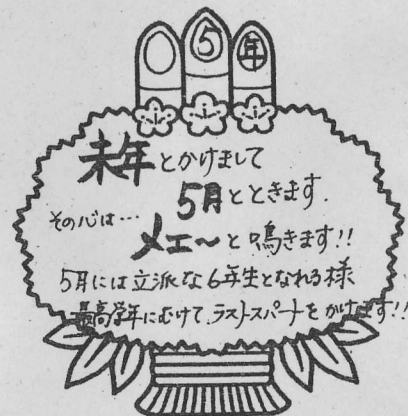 5年
未年とかけまして
5月とときます.
その心は…
メエ〜と鳴きます!!
5月には立派な6年生となれる様
最高学年にむけて、ラストスパートをかけます!!